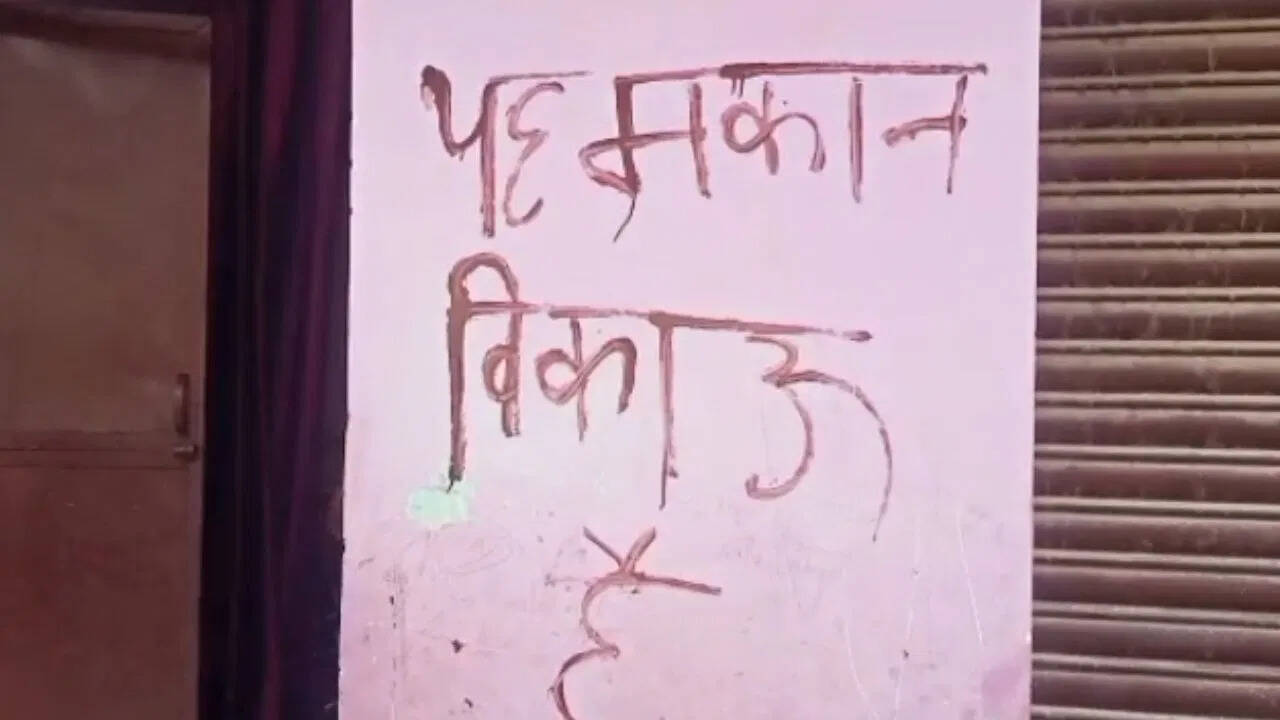 यह मकान
विकाऊ
है